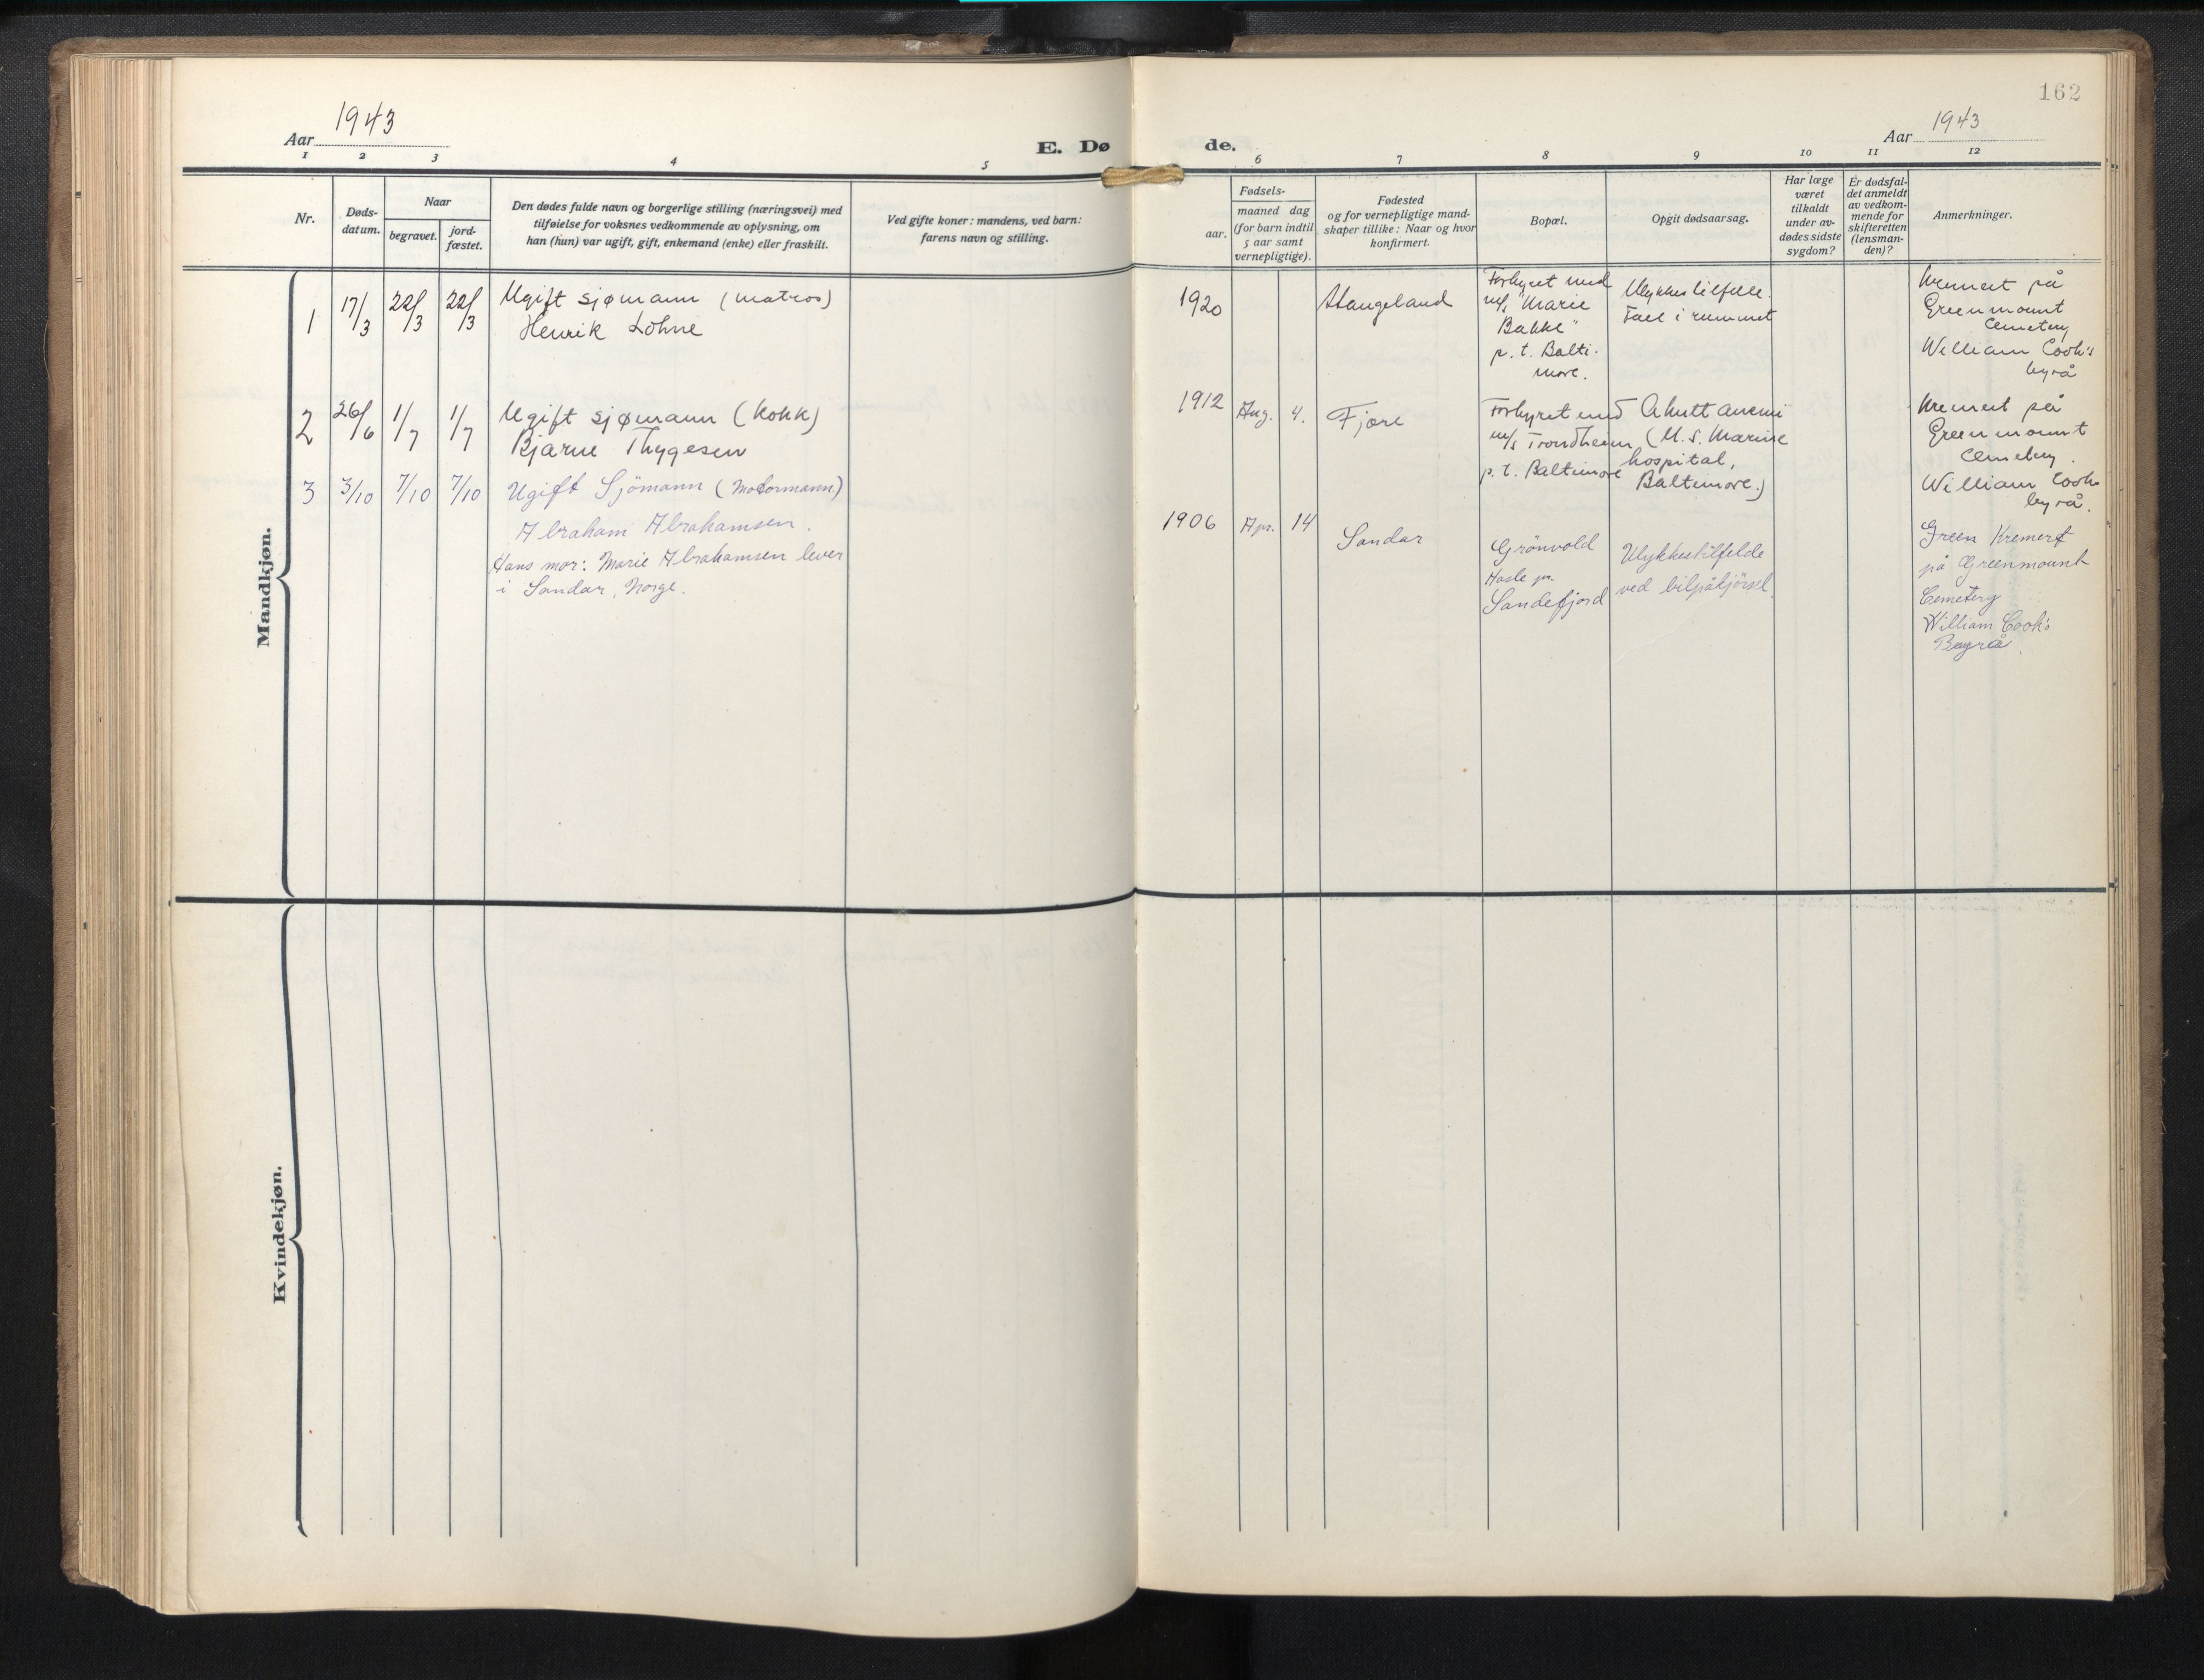 162
Aar 1943
E. Dø
de.
Aar 1943
1 2 3 4 5 6 7 8 9 10 11 12
Nr.
Døds-
datum.
Naar
begravet.
jord-
fæstet.
Den dødes fulde navn og borgerlige stilling (næringsvei) med
tilføielse for voksnes vedkommende av oplysning, om
han (hun) var ugift, gift, enkemand (enke) eller fraskilt.
Ved gifte koner: mandens, ved barn:
farens navn og stilling.
Fødsels-
aar.
maaned dag
(for barn indtil
5 aar samt
vernepligtige).
Fødested
og for vernepligtige mand-
skaper tillike: Naar og hvor
konfirmert.
Bopæl.
Opgit dødsaarsag.
Har læge
været
tilkaldt
under av-
dødes sidste
sygdom?
Er dødsfal-
det anmeldt
av vedkom-
mende for
skifteretten
(lensman-
den)?
Anmerkninger.
Mandkjøn.
1
17/3
22/3
22/3
Ugift sjømann (matros)
Henrik Löhne
1920
Stangeland
Forhyret med
m/s "Marie
Bakke"
p. t. Balti-
more.
Ulykkestilfelle.
Fall i rummet
Kremert på
Greenmount
Cemetery
William Cook's
byrå
2
26/6
1/7
1/7
Ugift sjømann (kokk)
Bjarne Thygesen
1912
Aug.
4.
Fjære
Forhyret med
m/s Trondheim
p. t. Baltimore
Akutt anemi
(U. S. Marine
hospital,
Baltimore.)
Kremert på
Greenmount
Cemetery.
William Cook
byrå.
3
3/10
7/10
7/10
Ugift Sjömann (Motormann)
Abraham Abrahamsen.
Hans mor: Marie Abrahamsen lever
i Sandar, Norge.
1906
Apr.
14
Sandar
Grönvold
Hasle pr.
Sandefjord
Ulykkestilfelde
ved bilpåkjörsel.
Green Kremert
på Greenmount
Cemetery
William Cook's
Bayrå.
Kvindekjøn.